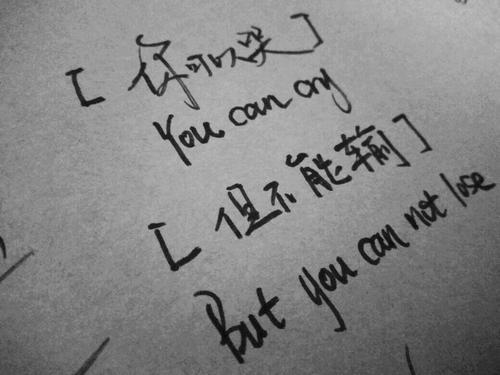 [ 你可以哭 ]
You can cry
[ 但不能输 ]
But you can not lose